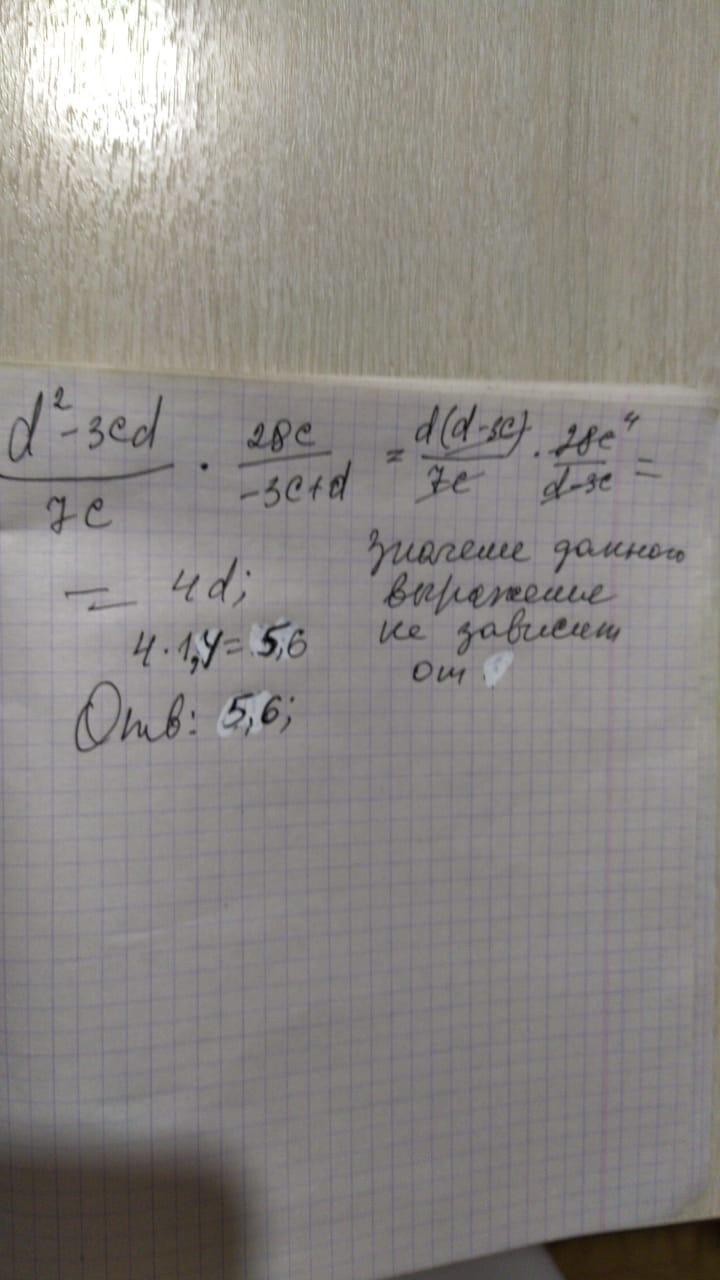 d²-3cd/7c · 28c/-3c+d = d(d-3c)/7c · 28c⁴/d-3c =
= 4d;
4·1,4=5,6
Отв: 5,6;
Значение данного
выражения
не зависит
от